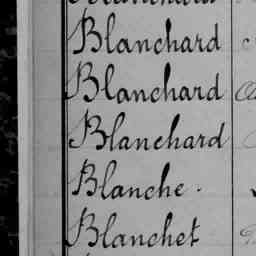 Blanchard
Blanchard
Blanchard
Blanche.
Blanchet